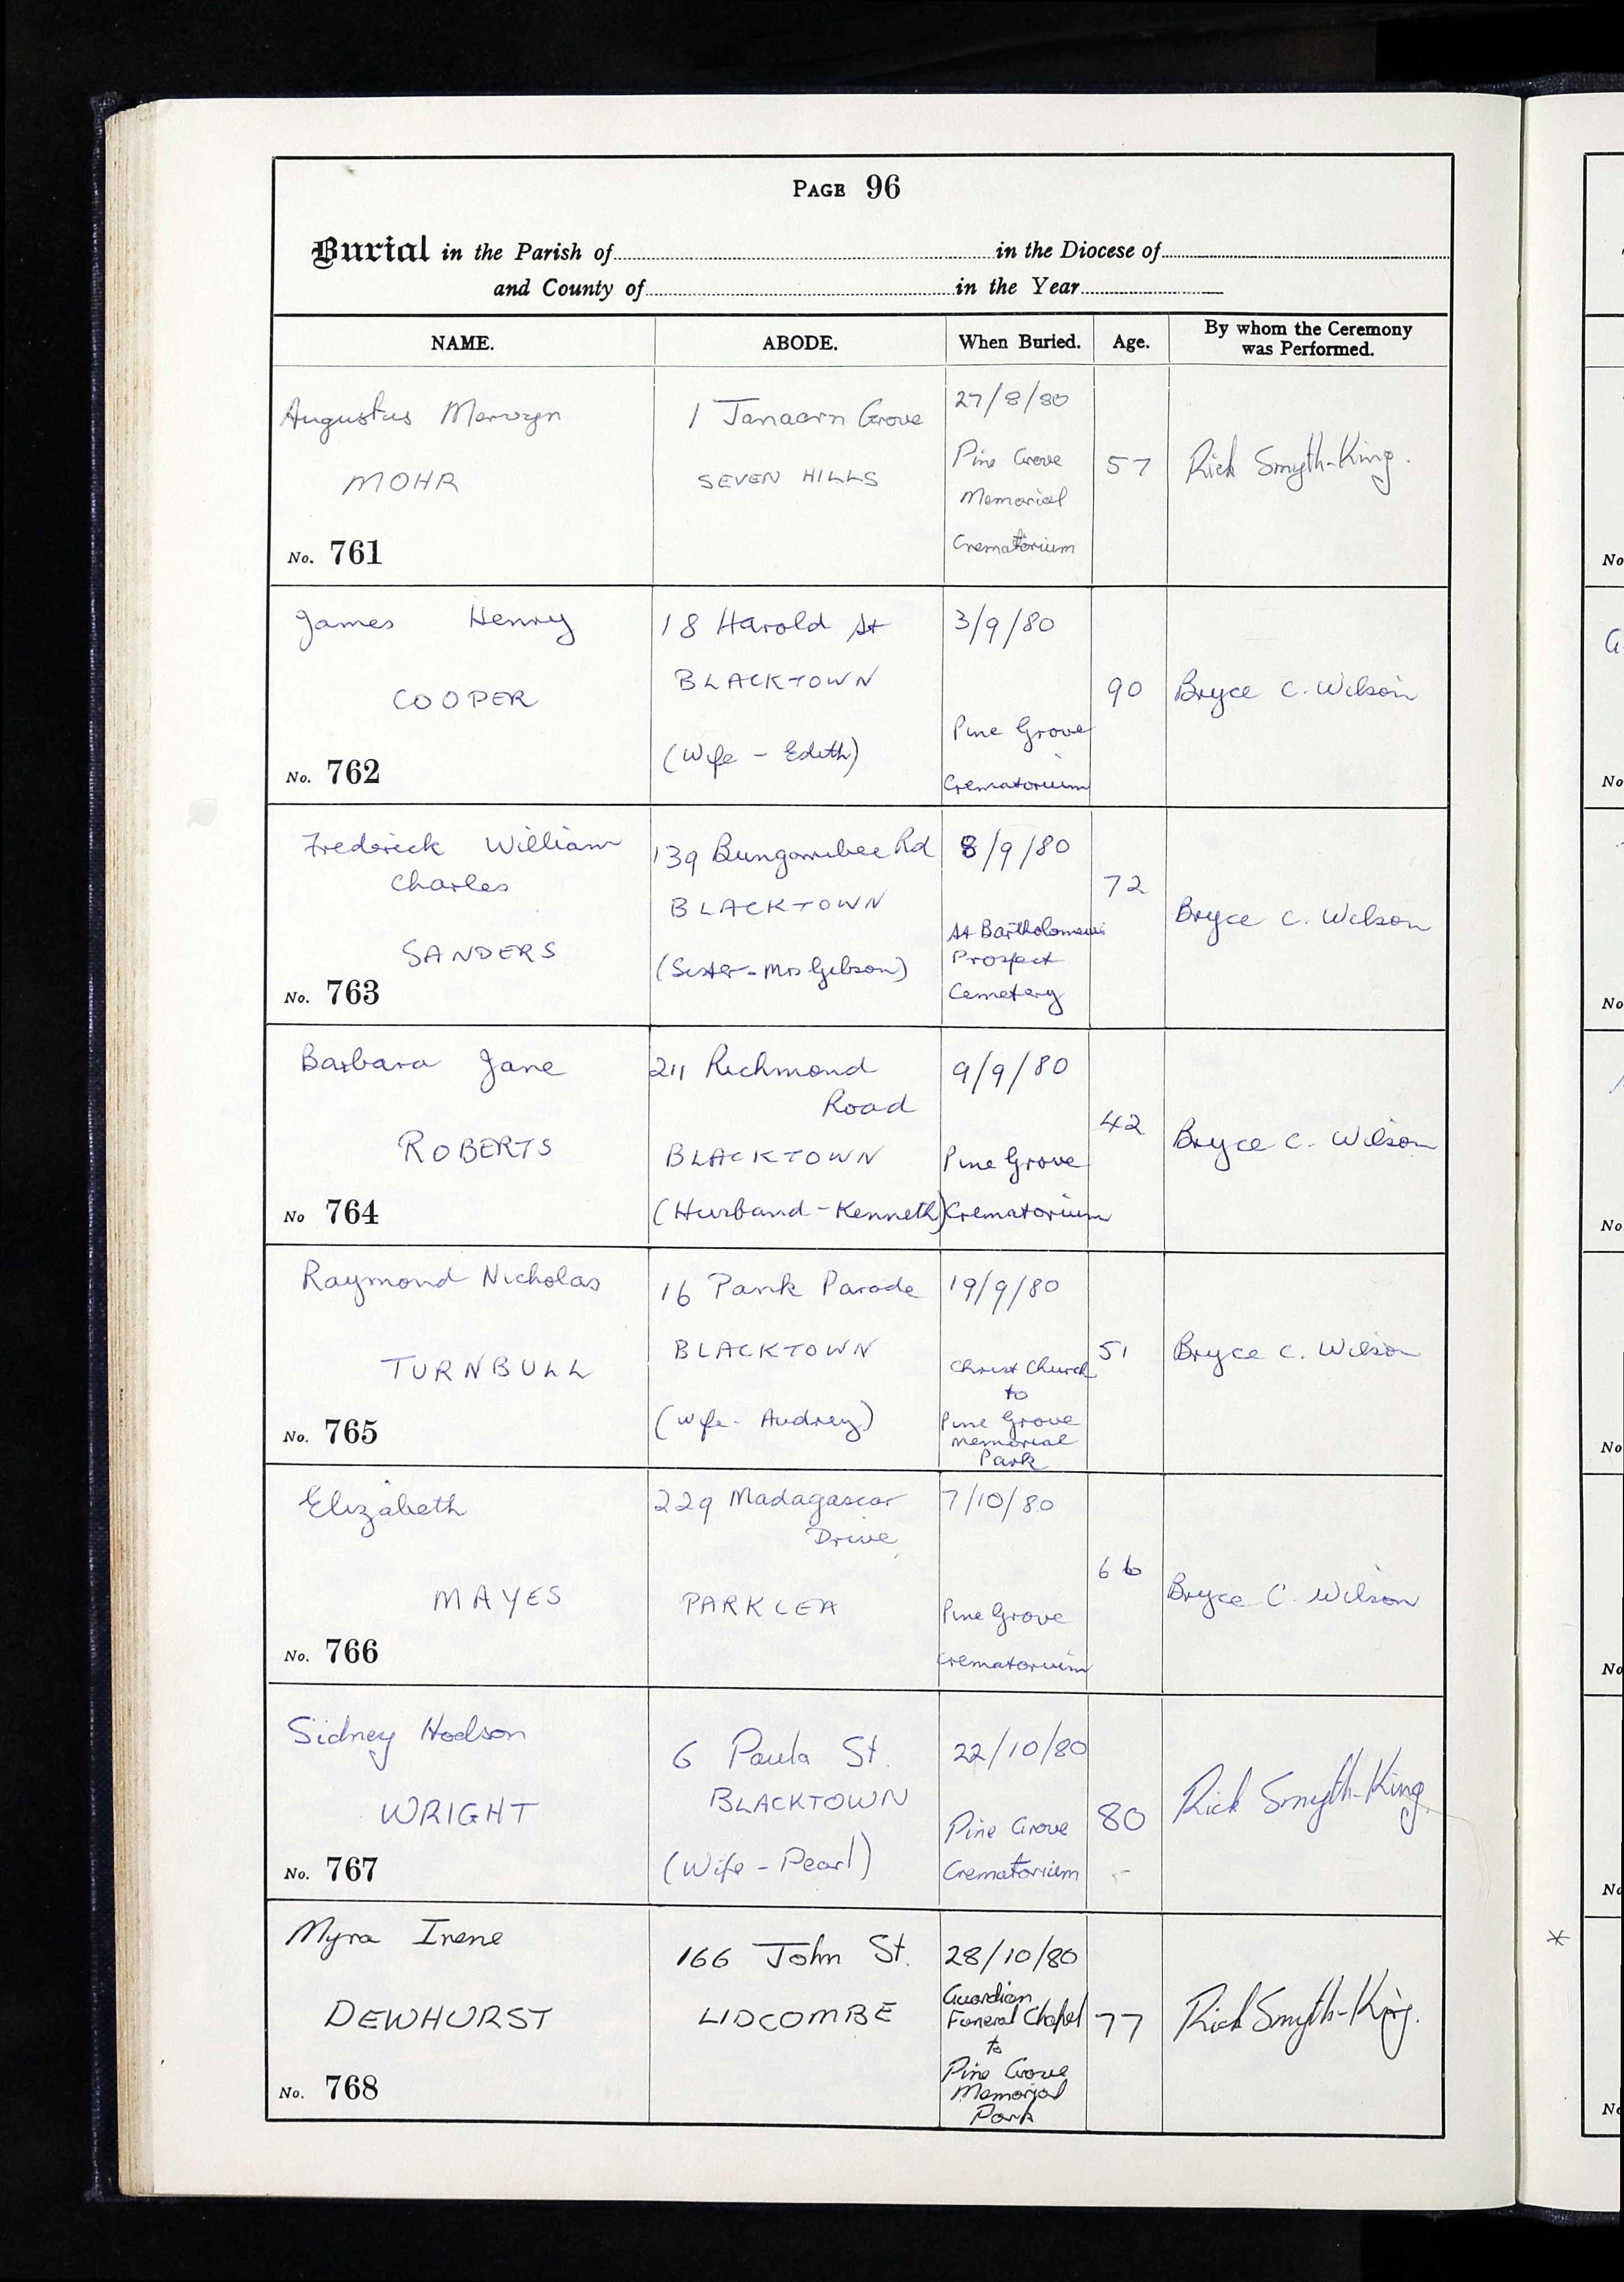 PAGE 96
Burial in the Parish of in the Diocese of
and County of in the Year
NAME. ABODE. When Buried. Age. By whom the Ceremony was Performed.
Augustus Mervyn
MOHR
No. 761
1 Grove
SEVEN HILLS
27/8/80
Pine Grove
Memorial
Crematorium
57
Rick Smyth-King.
James Henry
COOPER
No. 762
18 Harold St
BLACKTOWN
(Wife - Edith)
3/9/80
Pine Grove
Crematorium
90
Bryce C. Wilson
Frederick William
Charles
SANDERS
No. 763
139 Bungarribee Rd
BLACKTOWN
(Sister - Mrs Gibson)
8/9/80
St Bartholomew's
Prospect
Cemetery
72
Bryce C. Wilson
Barbara Jane
ROBERTS
No 764
211 Richmond
Road
BLACKTOWN
(Husband - Kenneth)
9/9/80
Pine Grove
Crematorium
42
Bryce C. Wilson
Raymond Nicholas
TURNBULL
No. 765
16 Park Parade
BLACKTOWN
(Wife - Audrey)
19/9/80
Christ Church
to
Pine Grove
Memorial
Park
51
Bryce C. Wilson
Elizabeth
MAYES
No. 766
229 Madagascar
Drive
PARKLEA
7/10/80
Pine Grove
Crematorium
66
Bryce C. Wilson
Sidney Hodson
WRIGHT
No. 767
6 Paula St.
BLACKTOWN
(Wife - Pearl)
22/10/80
Pine Grove
Crematorium
80
Rick Smyth-King.
Myra Irene
DEWHURST
No. 768
166 John St.
LIDCOMBE
28/10/80
Guardian
Funeral Chapel
to
Pine Grove
Memorial
Park
77
Rick Smyth-King.